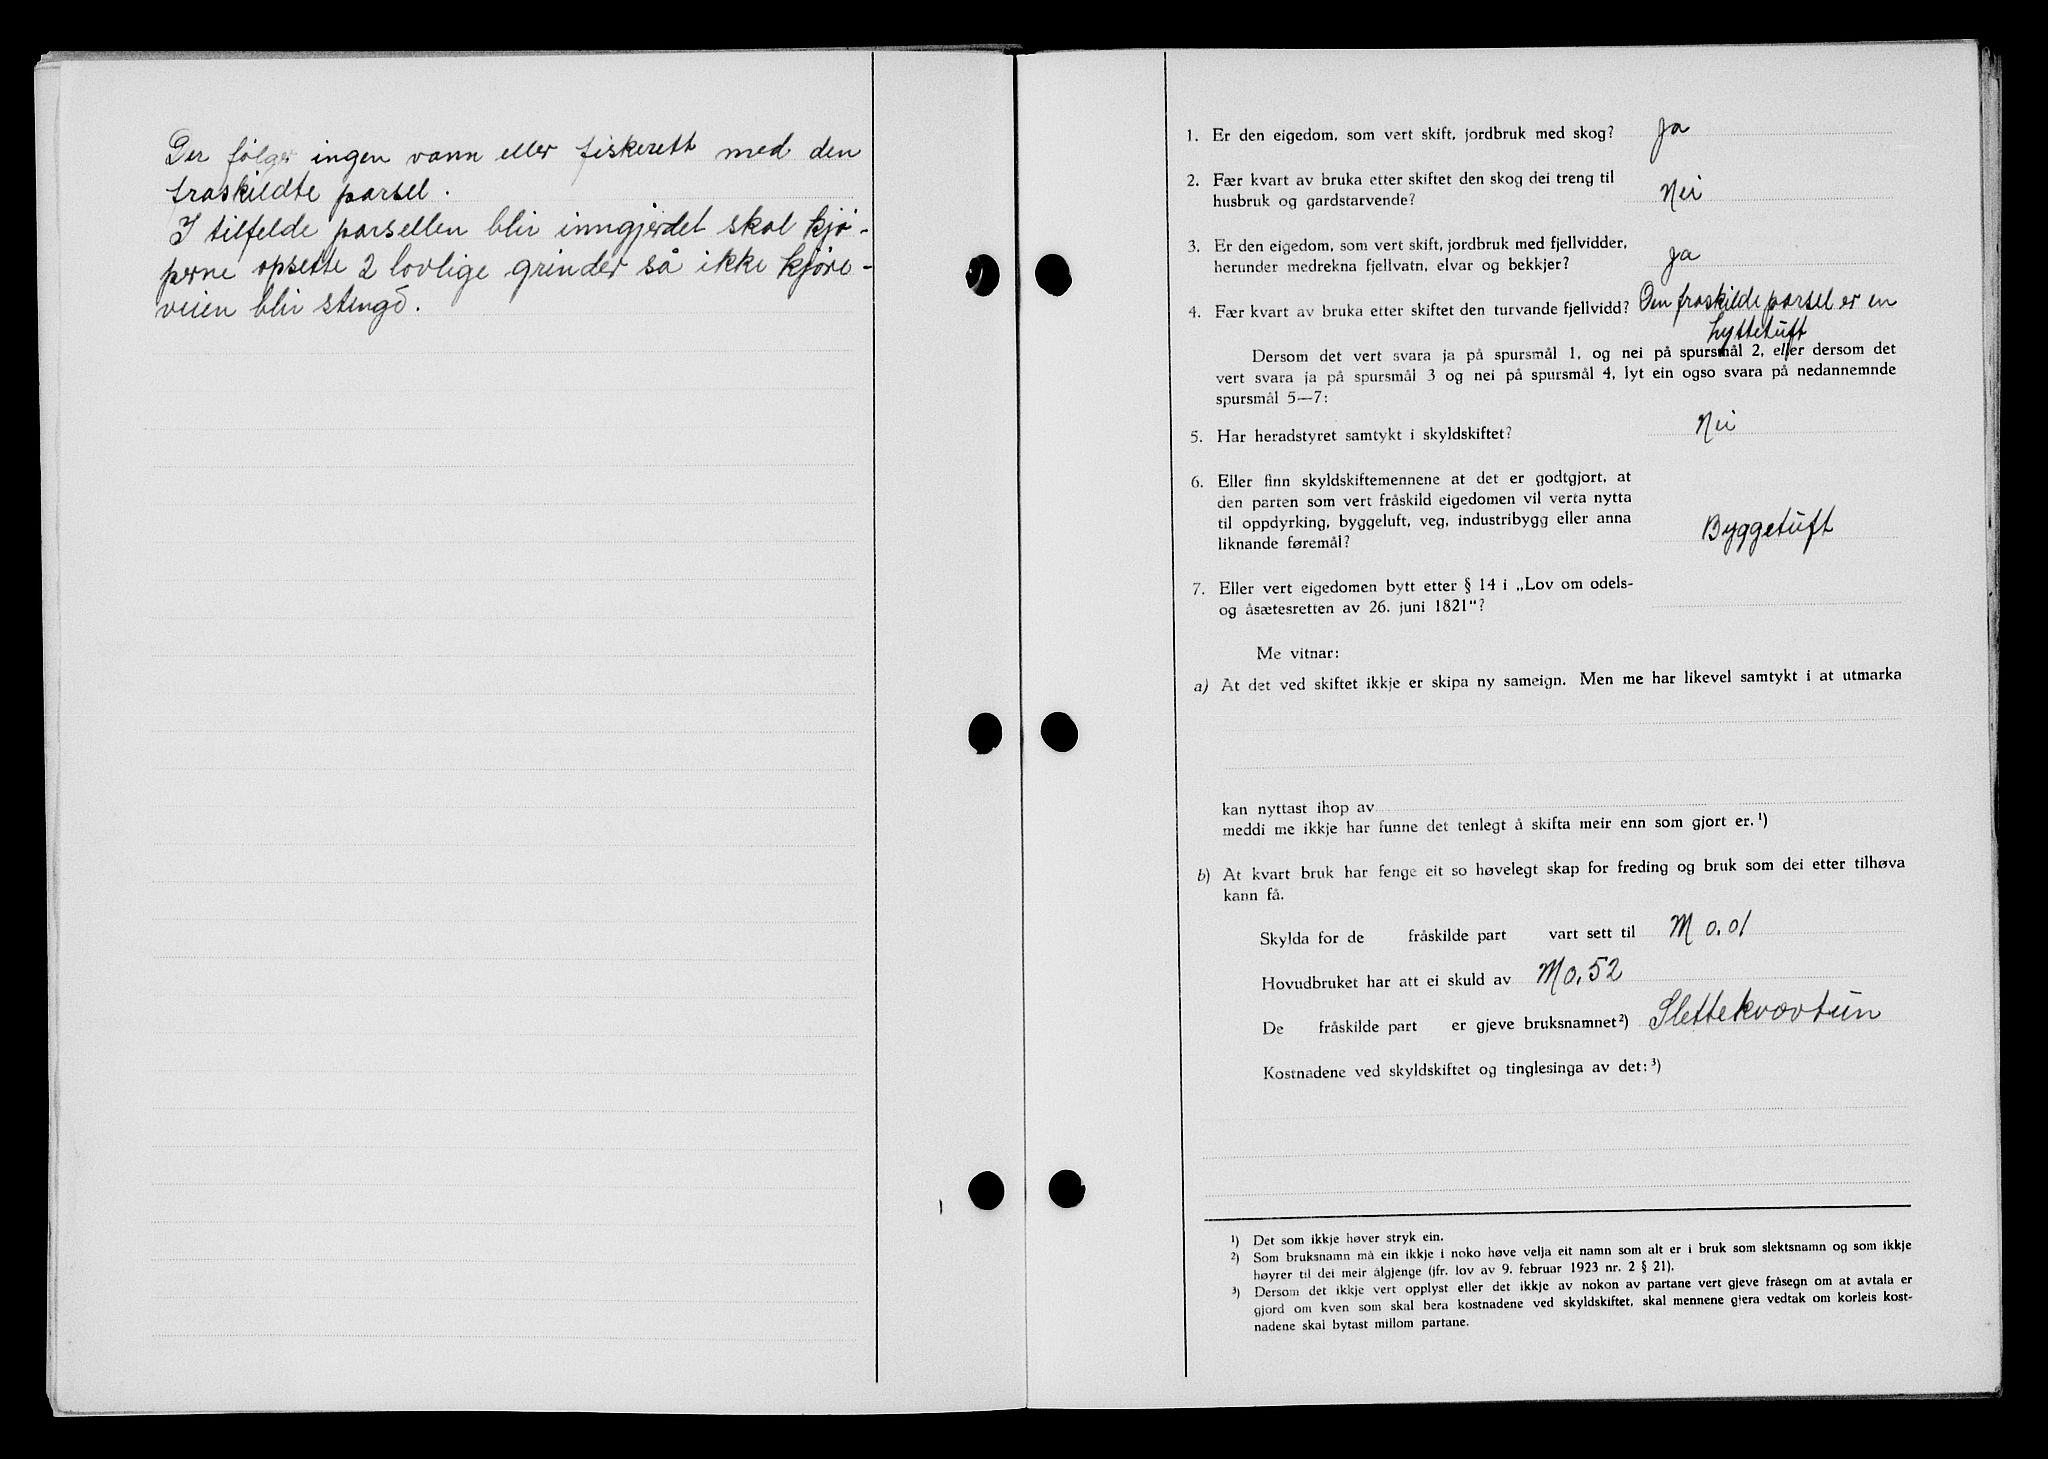 Der følger ingen vann eller fiskerett med den
fraskildte parsel.
I tilfelde parsellen blir inngjerdet skal kjø-
perne opsette 2 lovlige grinder så ikke kjøre-
veien blir stengd.
1. Er den eigedom, som vert skift, jordbruk med skog? Ja
2. Fær kvart av bruka etter skiftet den skog dei treng til
husbruk og gardstarvende? Nei
3. Er den eigedom, som vert skift, jordbruk med fjellvidder,
herunder medrekna fjellvatn, elvar og bekkjer? Ja
4. Fær kvart av bruka etter skiftet den turvande fjellvidd? Den fraskilde parsel er en
hyttetuft
Dersom det vert svara ja på spursmål 1, og nei på spursmål 2, eller dersom det
vert svara ja på spursmål 3 og nei på spursmål 4, lyt ein ogso svara på nedannemnde
spursmål 5—7:
5. Har heradstyret samtykt i skyldskiftet? Nei
6. Eller finn skyldskiftemennene at det er godtgjort, at
den parten som vert fråskild eigedomen vil verta nytta
til oppdyrking, byggeluft, veg, industribygg eller anna
liknande føremål? Byggetuft
7. Eller vert eigedomen bytt etter § 14 i „Lov om odels-
og åsætesretten av 26. juni 1821“?
Me vitnar:
a) At det ved skiftet ikkje er skipa ny sameign. Men me har likevel samtykt i at utmarka
kan nyttast ihop av
meddi me ikkje har funne det tenlegt å skifta meir enn som gjort er.¹)
b) At kvart bruk har fenge eit so høvelegt skap for freding og bruk som dei etter tilhøva
kann få.
Skylda for de fråskilde part vart sett til M 0.01
Hovudbruket har att ei skuld av M 0,52
De fråskilde part er gjeve bruksnamnet²) Slettekvævtun
Kostnadene ved skyldskiftet og tinglesinga av det:³)
¹) Det som ikkje høver stryk ein.
²) Som bruksnamn må ein ikkje i noko høve velja eit namn som alt er i bruk som slektsnamn og som ikkje
høyrer til dei meir ålgjenge (jfr. lov av 9. februar 1923 nr. 2 § 21).
³) Dersom det ikkje vert opplyst eller det ikkje av nokon av partane vert gjeve fråsegn om at avtala er
gjord om kven som skal bera kostnadene ved skyldskiftet, skal mennene gjera vedtak om korleis kost-
nadene skal bytast millom partane.